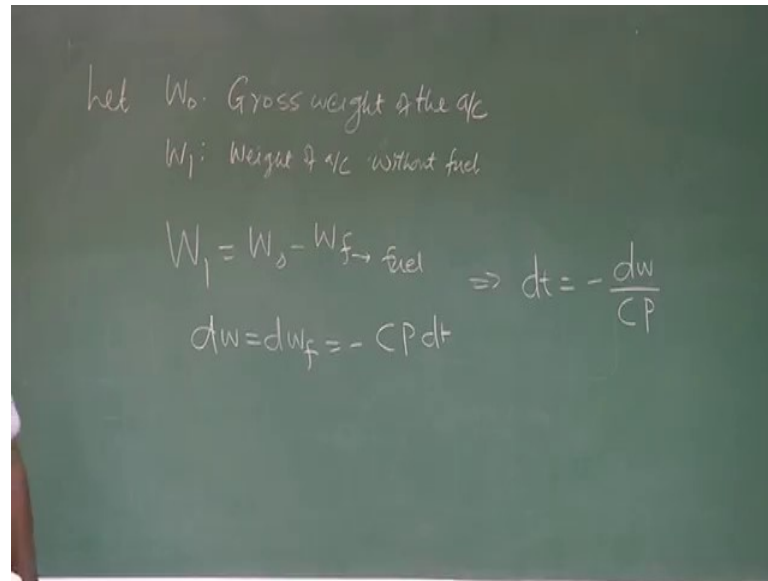 Let W₀. Gross weight of the a/c
W₁: Weight of a/c without fuel
W₁ = W₀ - W_f → fuel
⇒ dt = - dw / CP
dw = dw_f = - CP dt